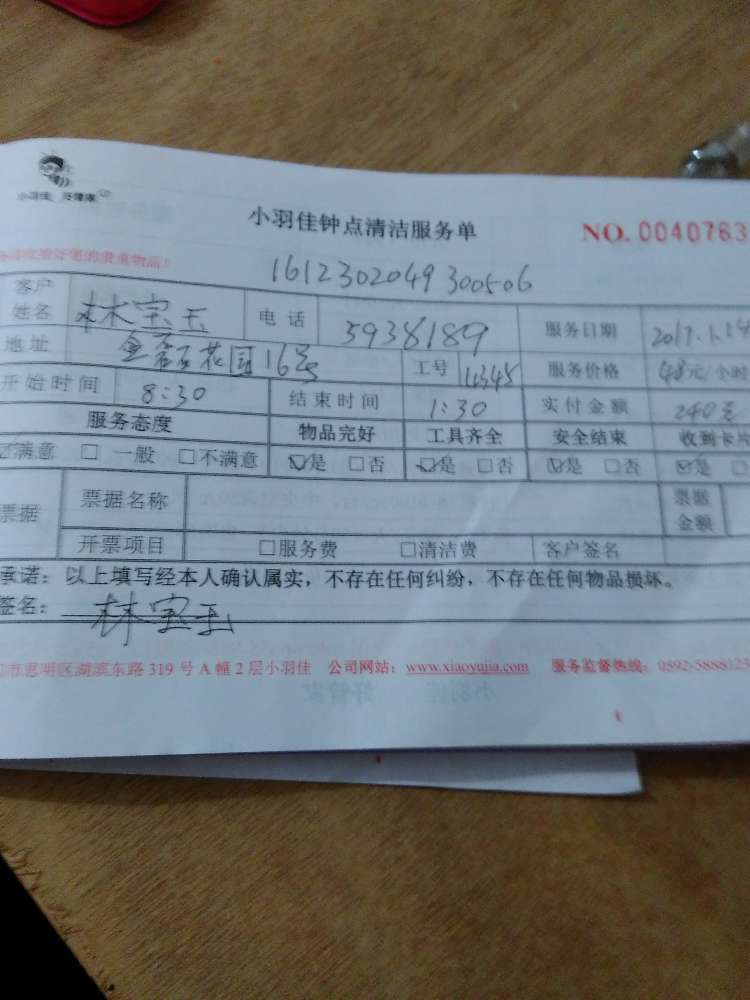 小羽佳 好管家
小羽佳钟点清洁服务单
NO. 0040763
1612302049300506
客户姓名 林宝玉 电话 5938189 服务日期 2017.1.14
地址 金磊花园16号 工号 11345 服务价格 48元/小时
开始时间 8:30 结束时间 1:30 实付金额 240元
服务态度 物品完好 工具齐全 安全结束 收到卡片
☑满意 □一般 □不满意 ☑是 □否 ☑是 □否 ☑是 □否 ☑是 □
票据 票据名称 票据金额
开票项目 □服务费 □清洁费 客户签名
承诺：以上填写经本人确认属实，不存在任何纠纷，不存在任何物品损坏。
签名：林宝玉
市思明区湖滨东路 319 号 A 幢 2 层小羽佳 公司网站：www.xiaoyujia.com 服务监督热线：0592-5888123